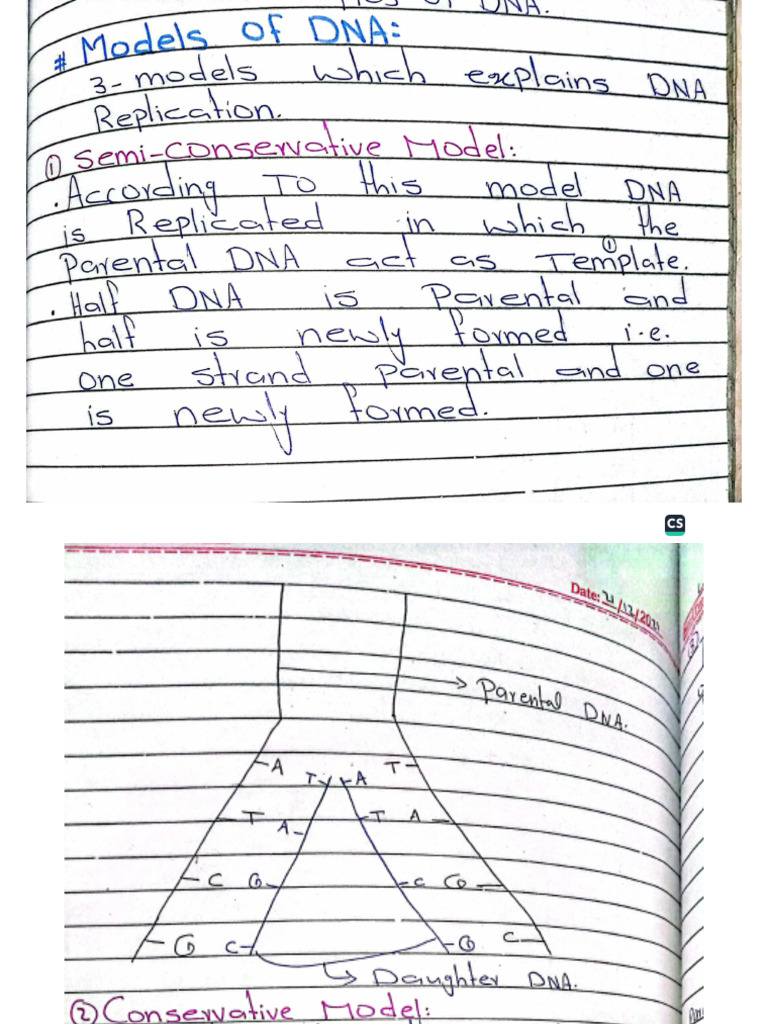 OF DNA.
# Models of DNA:
3-models which explains DNA
Replication.
① Semi-Conservative Model:
. According To this model DNA
is Replicated in which the
①
Parental DNA act as Template.
. Half DNA is Parental and
half is newly formed i.e.
one strand parental and one
is newly formed.
CS
Date: 21/12/2021
→ Parental DNA.
A T A T
T A T A
C G C G
G C G C
↳ Daughter DNA.
② Conservative Model: